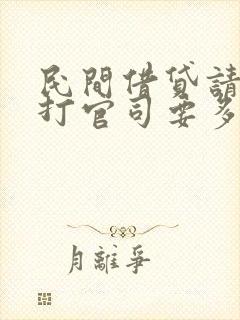 民間借貸請
打官司要多
月離爭